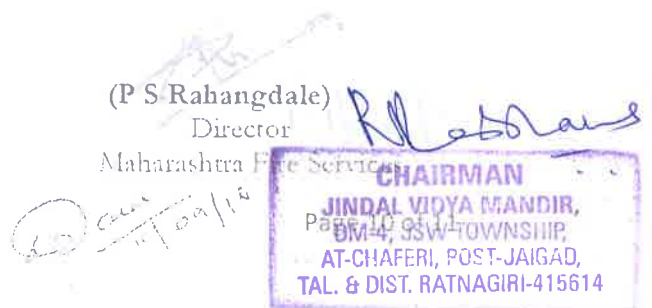 (P S Rahangdale)
Director
Maharashtra Fire Services
CHAIRMAN
JINDAL VIDYA MANDIR,
Page 10 of 11
DM-4, JSW TOWNSHIP,
AT-CHAFERI, POST-JAIGAD,
TAL. & DIST. RATNAGIRI-415614